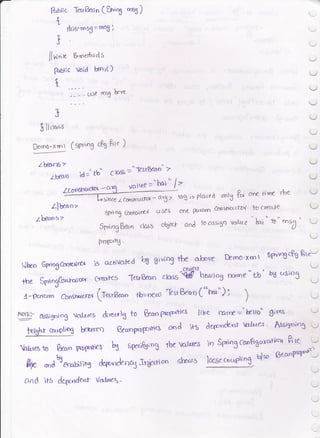 Public TestBean (String msg)
{
this.msg = msg;
}
// write B.methods
Public void bm1()
{
---- use msg here
}
} // class
Demo.xml (spring cfg file)
<beans>
<bean id="tb" class="TestBean">
<constructor-arg value="hai"/>
</bean>
</beans>
Since <constructor-arg> tag is placed only for one time the
Spring container uses one param constructor to create
Spring Bean class object and to assign value "hai" to "msg"
property.
When SpringContainer is activated by giving the above Demo.xml spring cfg file
the SpringContainer creates TestBean class object having name "tb" by using
1-param constructor (TestBean tb=new TestBean("hai"); )
Note:- Assigning values directly to Bean properties like name="hello" gives
tight coupling between Beanproperties and its dependent values. Assigning
Values to Bean properties by specifying the values in Spring Configuration file
and by enabling dependency Injection shows loose coupling b/w Beanproperties
and its dependent values.